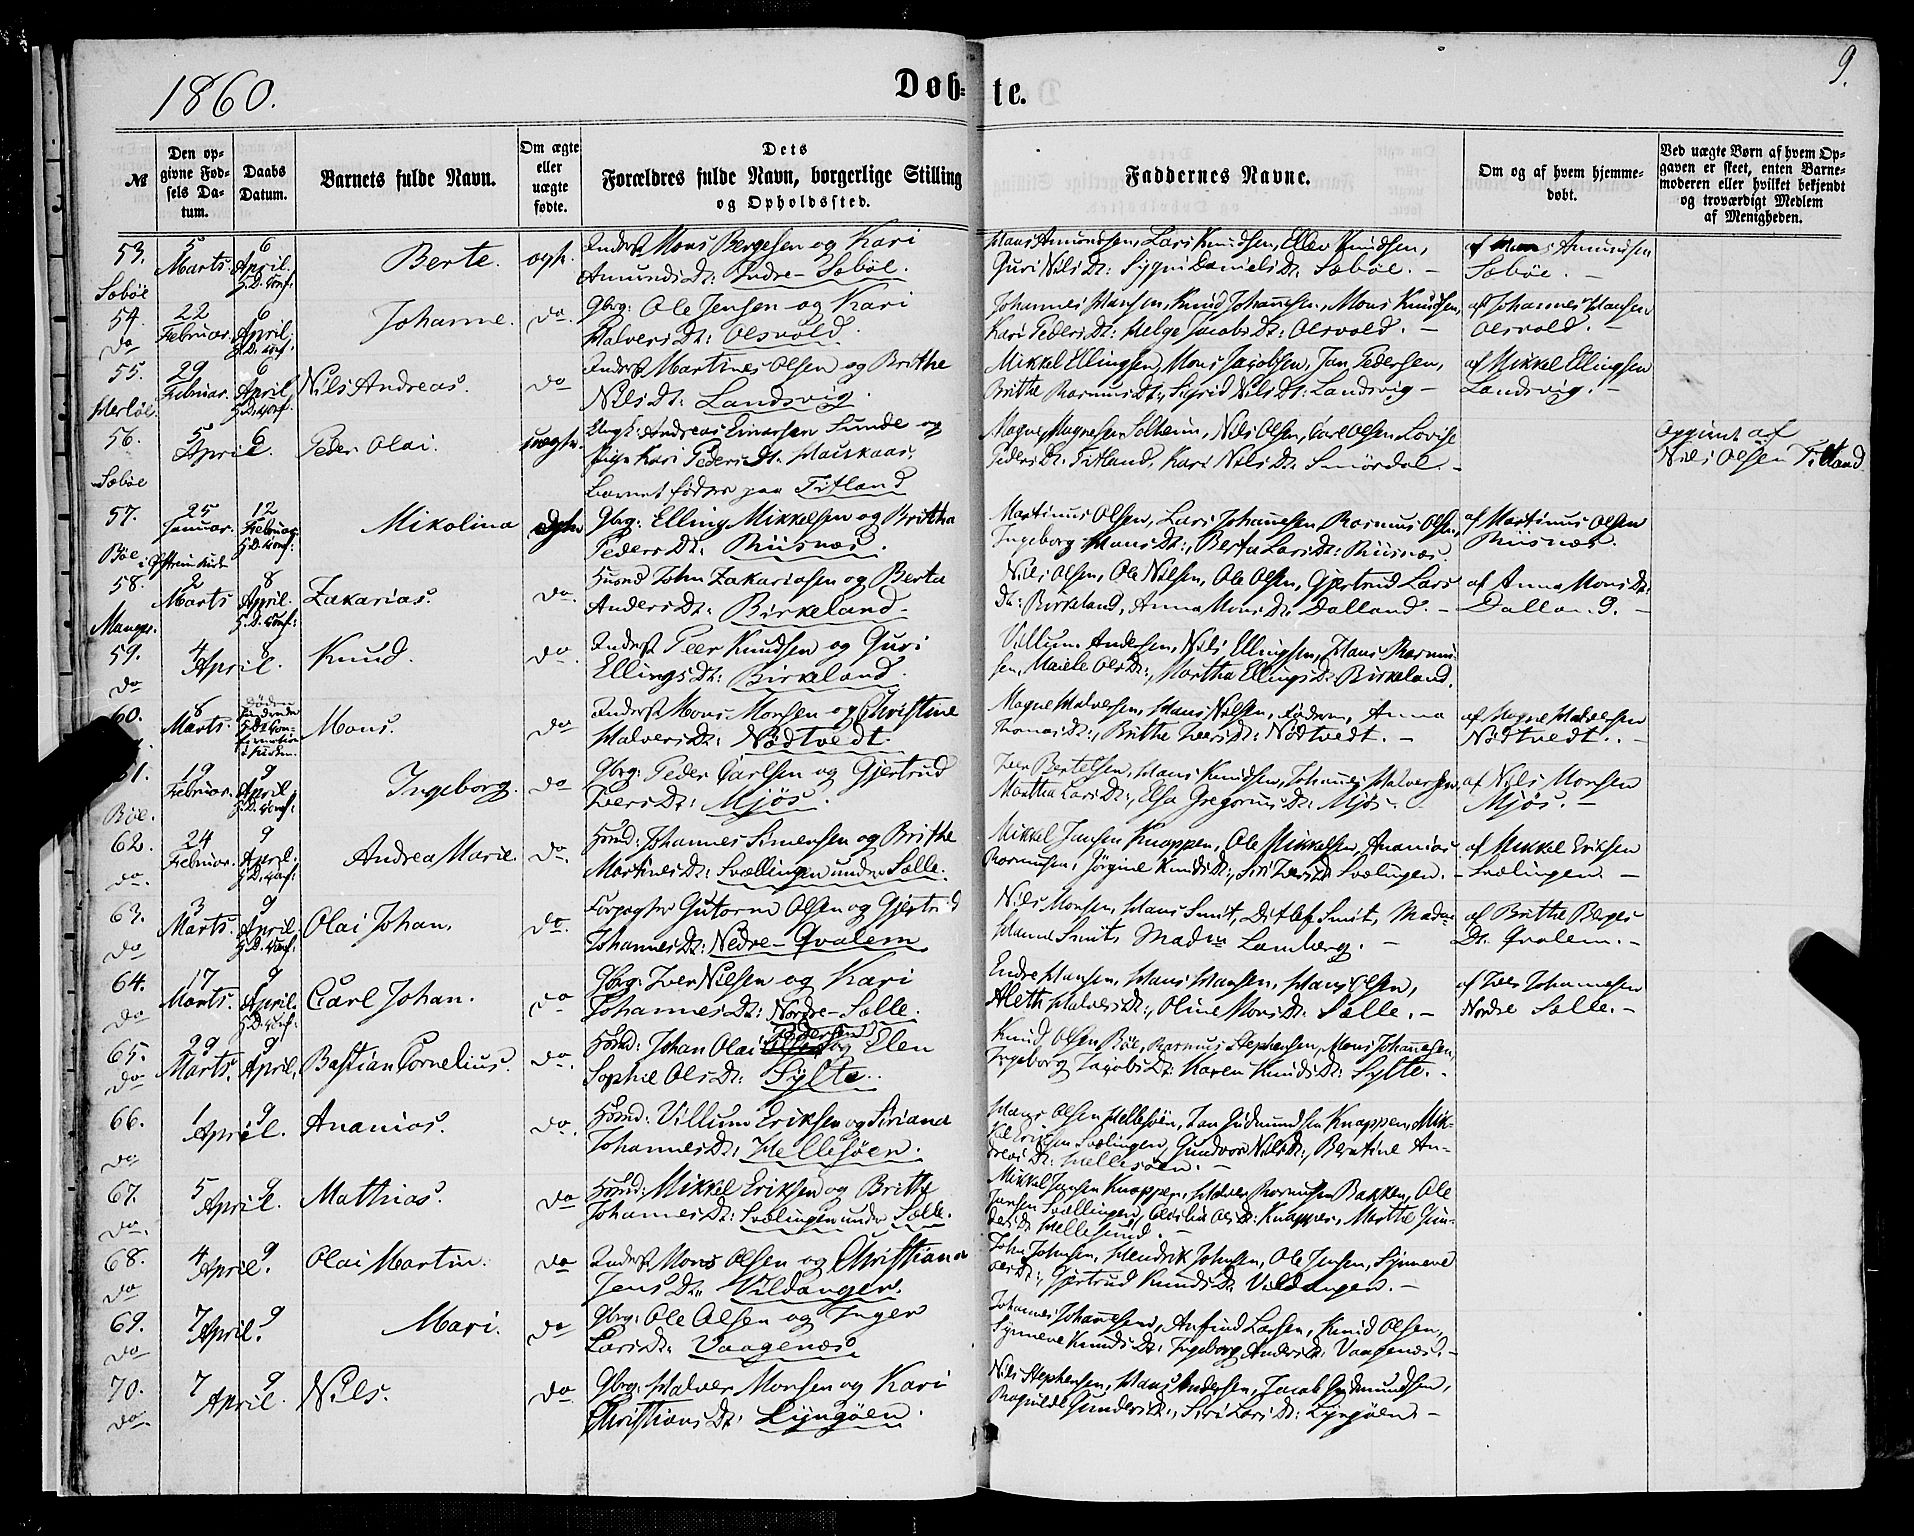 1860.
Døbte.
9.
№
Den opgivne Fødsels Datum.
Daabs Datum.
Barnets fulde Navn.
Om ægte eller uægte fødte.
Dets Forældres fulde Navn, borgerlige Stilling og Opholdssted.
Faddernes Navne.
Om og af hvem hjemmedøbt.
Ved uægte Børn af hvem Opgaven er skeet, enten Barnemoderen eller hvilket bekjendt og troværdigt Medlem af Menigheden.
53. Sæbøe
5 Marts.
6 April. H.D. Conf:
Berte.
ægte.
Inderst Mons Bergesen og Kari
Amunds Dt: Indre-Sæbøe.
Hans Amundsen, Lars Knudsen, Ellev Knudsen,
Guri Nils Dt: Sygni Daniels Dt. Sæbøe. –
af Amundsen
Sæbøe. –
54. do
22 Februar.
6 April. H.D. Conf:
Johanne.
do.
Gbrg: Ole Jensen og Kari
Halvers Dt: Olsvold.
Johannes Hansen, Knud Johannesen, Mons Knudsen,
Kari Peders Dt: Helge Jacobs Dt: Olsvold. –
af Johannes Hansen
Olsvold. –
55. Herløe
29 Februar.
6 April. H.D. Conf:
Nils Andreas.
do
Inderst Martines Olsen og Brithe
Nils Dt: Landsvig.
Mikkel Ellingsen, Mons Jacobsen, Jan Pedersen,
Brithe Rasmus Dt:, Sigrid Nils Dt: Landsvig –
af Mikkel Ellingsen
Landsvig. –
56. Sæbøe
5 April.
6
Peder Olai.
uægte.
Ungk: Andreas Einarsen Sunde og
Pige Kari Peders Dt.
Barnet fødtes paa Titland
Magne Magnesen Solheim, Nils Olsen, Carl Olsen Lovise
Peders Dt: Titland, Kari Nils Dt: Smørdal –
Opgivet af
Nils Olsen Titland
57. Bøe
25 Januar.
12 Februar H.D. Conf:
Mikolina
ægte
Gbrg: Elling Mikkelsen og Britha
Peders Dt: Riisnæs.
Martinus Olsen, Lars Johannesen Rasmus Olsen,
Ingeborg Hans Dt:, Berte Lars Dt: Riisnæs
af Martinus Olsen
Riisnæs.
58. Manger
2 Marts
8 April. H.D. Conf:
Zakarias.
do.
Husmd John Zakariasen og Berta
Anders Dt: Birkeland –
Nils Olsen, Ole Nilsen, Ole Olsen, Gjertrud Lars
Dt: Birkeland, Anna Mons Dt: Dalland. –
af Anna Mons Dt:
Dalland. –
59. do
4 April.
8
Knud.
do
Inderst Peer Knudsen og Guri
Ellings Dt: Birkeland.
Villum Andersen, Nils Ellingsen, Hans Rasmus-
sen, Maiele Ols Dt:, Martha Ellings Dt Birkeland.
60.
8 Marts.
Mons.
do
Inderst Mons Monsen og Christine
Halvers Dt: Nødtvedt.
Magne Halversen, Hans Nilsen, Faderen, Anna
Thomas Dt:, Brithe Ivers Dt: Nødtvedt. –
af Magne Halversen
Nødtvedt. –
61. Bøe.
19 Februar.
9 April H.D. Conf:
Ingeborg.
do
Gbrg: Peder Carlsen og Gjertrud
Ivers Dt: Mjøs.
Iver Bertelsen, Hans Knudsen, Johannes Halversen,
Martha Lars Dt:, Elsa Gregorius Dt: Mjøs.
af Nils Monsen
Mjøs. –
62. do.
24 Februar.
9 April. H.D. Conf:
Andrea Marie.
do.
Husmd: Johannes Simensen og Brithe
Martines Dt: Svællingen under Sælle.
Mikkel Jansen Knappen, Ole Mikkelsen, Ananias
Rasmusen, Jørgine Knuds Dt:, Siri Ivers Dt Svælingen. –
af Mikkel Eriksen
Svælingen. –
63. do
3 Marts.
9 April. H.D. Conf:
Olai Johan.
do.
Forpagter Gutorm Olsen og Gjertrud
Johannes Dt: Nedre-Qvalem
Nils Monsen, Hans Smit, Ditlef Smit, Madm
Hanne Smit, Madm Lamberg. –
af Brithe Berges
Dt. Qvalem. –
64. do
17 Marts.
9 April. H.D. Conf:
Carl Johan.
do
Gbrg: Iver Nilsen og Kari
Johannes Dt: Nordre-Sælle.
Endre Hansen, Hans Hansen, Hans Olsen,
Aleth Halvers Dt:, Oline Mons Dt. Sælle. –
af Iver Johannesen
Nordre Sælle. –
65. do
29 Marts.
9 April.
Bastian Cornelius.
do.
Husmd: Johan Olai Pedersen og Elen
Sophie Ols Dt: Sylte.
Knud Olsen Bøe, Rasmus Stephensen, Mons Johannesen,
Ingeborg Jacobs Dt: Karen Knuds Dt: Sylte. –
66. do
1 April.
9
Ananias.
do.
Husmd: Villum Eriksen og Siriana
Johannes Dt: Hellesøen.
Hans Olsen Hellesøen, Jan Gudmundsen Knappen, Mik-
kel Eriksen Svælingen, Gundvor Nils Dt:, Berntine An-
dreas Dt: Hellesøen. –
67. do.
5 April.
9
Mathias.
do
Husmd: Mikkel Eriksen og Brithe
Johannes Dt: Svælingen under Sælle.
Mikkel Jansen Knappen, Halver Rasmusen Bakken, Ole
Jansen Svællingen, Ols Dt: Knappen, Marthe Gun-
ders Dt Hellesund. –
68. do
4 April.
9
Olai Martin.
do
Inderst Mons Olsen og Christiana
Jens Dt: Vildanger.
John Johnsen, Hendrik Johnsen, Ole Jensen, Synneve
Ols Dt:, Gjertrud Knuds Dt Vildangen. –
69. do
7 April.
9
Mari.
do
Gbrg: Ole Olsen og Inger
Lars Dt: Vaagenæs
Johannes Johannesen, Anfind Larsen, Knud Olsen,
Synneve Knuds Dt: Ingeborg Anders Dt: Vaagenæs. –
70. do.
7 April.
9
Nils.
do
Gbrg: Halver Monsen og Kari
Christians Dt: Lyngøen.
Nils Stephensen, Hans Andersen, Jacob Gudmundsen,
Ragnilde Gunders Dt:, Siri Lars Dt: Lyngøen. –